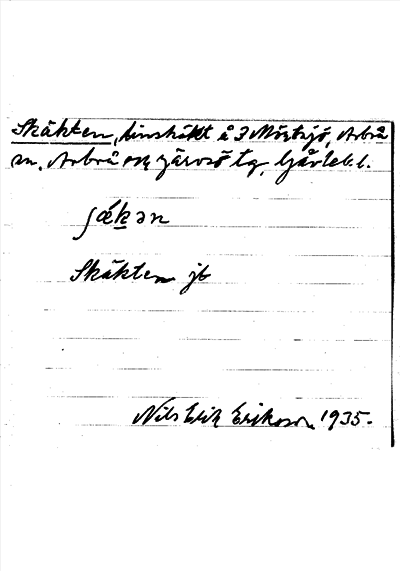 Skäkten, linskäkt å 3 Mörtsjö, Arbrå
sn, Arbrå och Järvsö tg, Gävleb. l.
ʃǽkən
Skäkten jb
Nils Erik Erikson 1935.